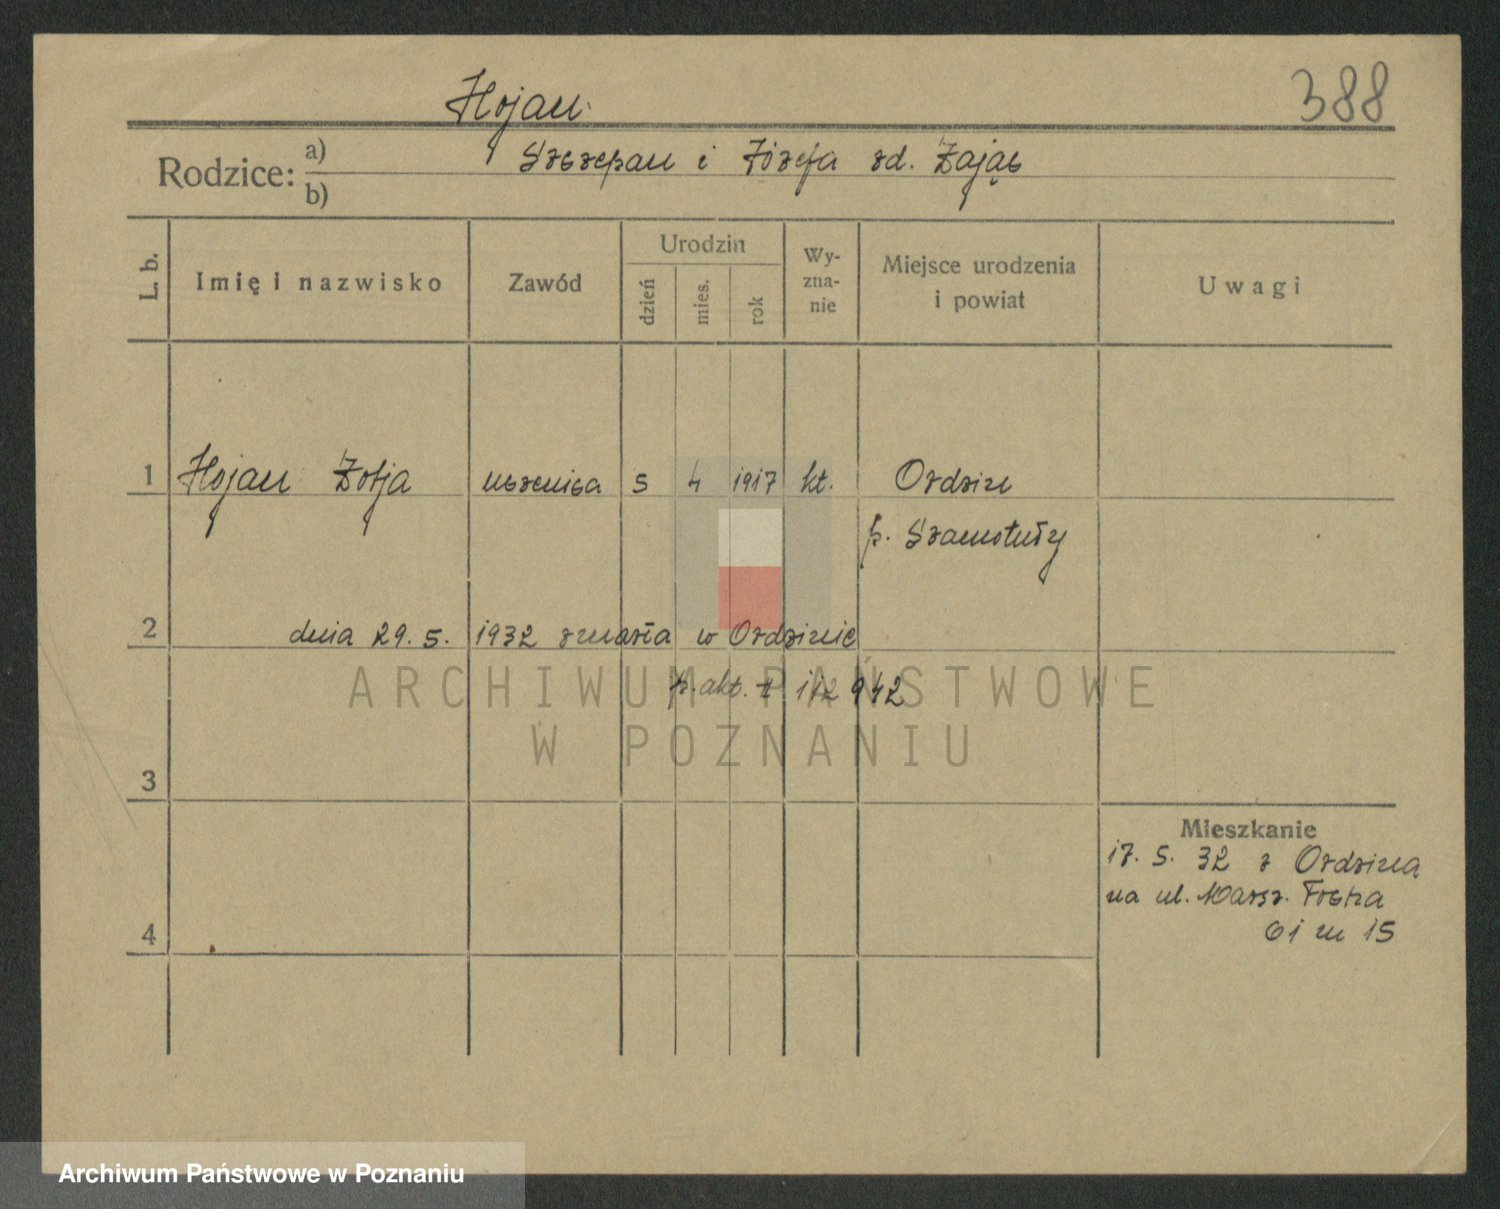 Hojan
388
Rodzice: a) Szczepan i Józefa zd. Zając
b)
L. b.
Imię i nazwisko
Zawód
Urodzin
dzień
mies.
rok
Wy-
zna-
nie
Miejsce urodzenia
i powiat
Uwagi
1 Hojan Zofja uczenica 5 4 1917 kt. Ordzin
p. Szamotuły
2 dnia 29. 5. 1932 zmarła w Ordzinie
p. akt. 112 942
ARCHIWUM PAŃSTWOWE
W POZNANIU
3
Mieszkanie
17. 5. 32 z Ordzina
na ul. Marsz. Focha
61 m 15
4
Archiwum Państwowe w Poznaniu